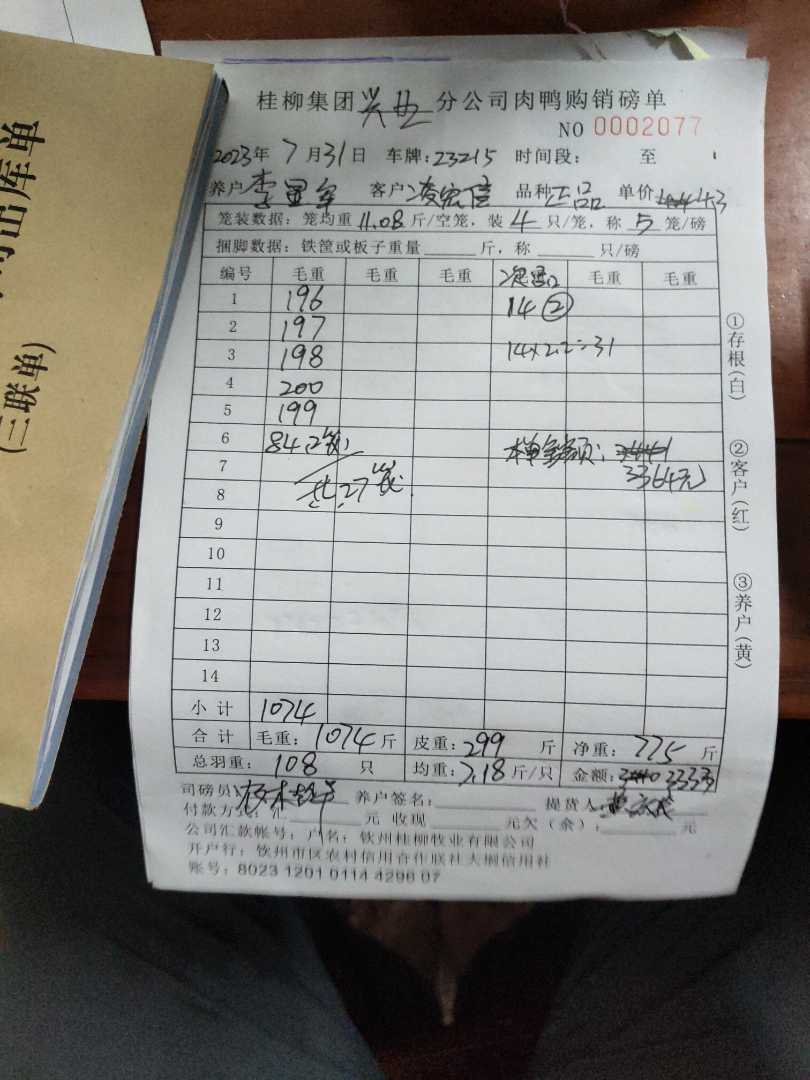 出库单
(三联单)
桂柳集团兴业分公司肉鸭购销磅单
NO 0002077
2023年7月31日 车牌:23215 时间段: 至
养户 李 客户 凌宏信 品种 正品 单价 4.3
笼装数据:笼均重 11.08 斤/空笼,装 4 只/笼,称 5 笼/磅
捆脚数据:铁筐或板子重量 斤,称 只/磅
编号 毛重 毛重 毛重 毛重 毛重
1 196 14 ②
2 197
3 198 14×2.2=31
4 200
5 199
6 84(2笼) 本单金额:
7 共27笼 3364元
8
9
10
11
12
13
14
小计 1074
合计 毛重:1074斤 皮重:299 斤 净重:775 斤
总羽重:108 只 均重:7.18斤/只 金额:3333
司磅员: 养户签名: 提货人:
付款方式:汇 元 收现 元欠(余): 元
公司汇款帐号:户名:钦州桂柳牧业有限公司
开户行:钦州市区农村信用合作联社大垌信用社
账号:8023 1201 0114 4296 07
①存根(白)
②客户(红)
③养户(黄)